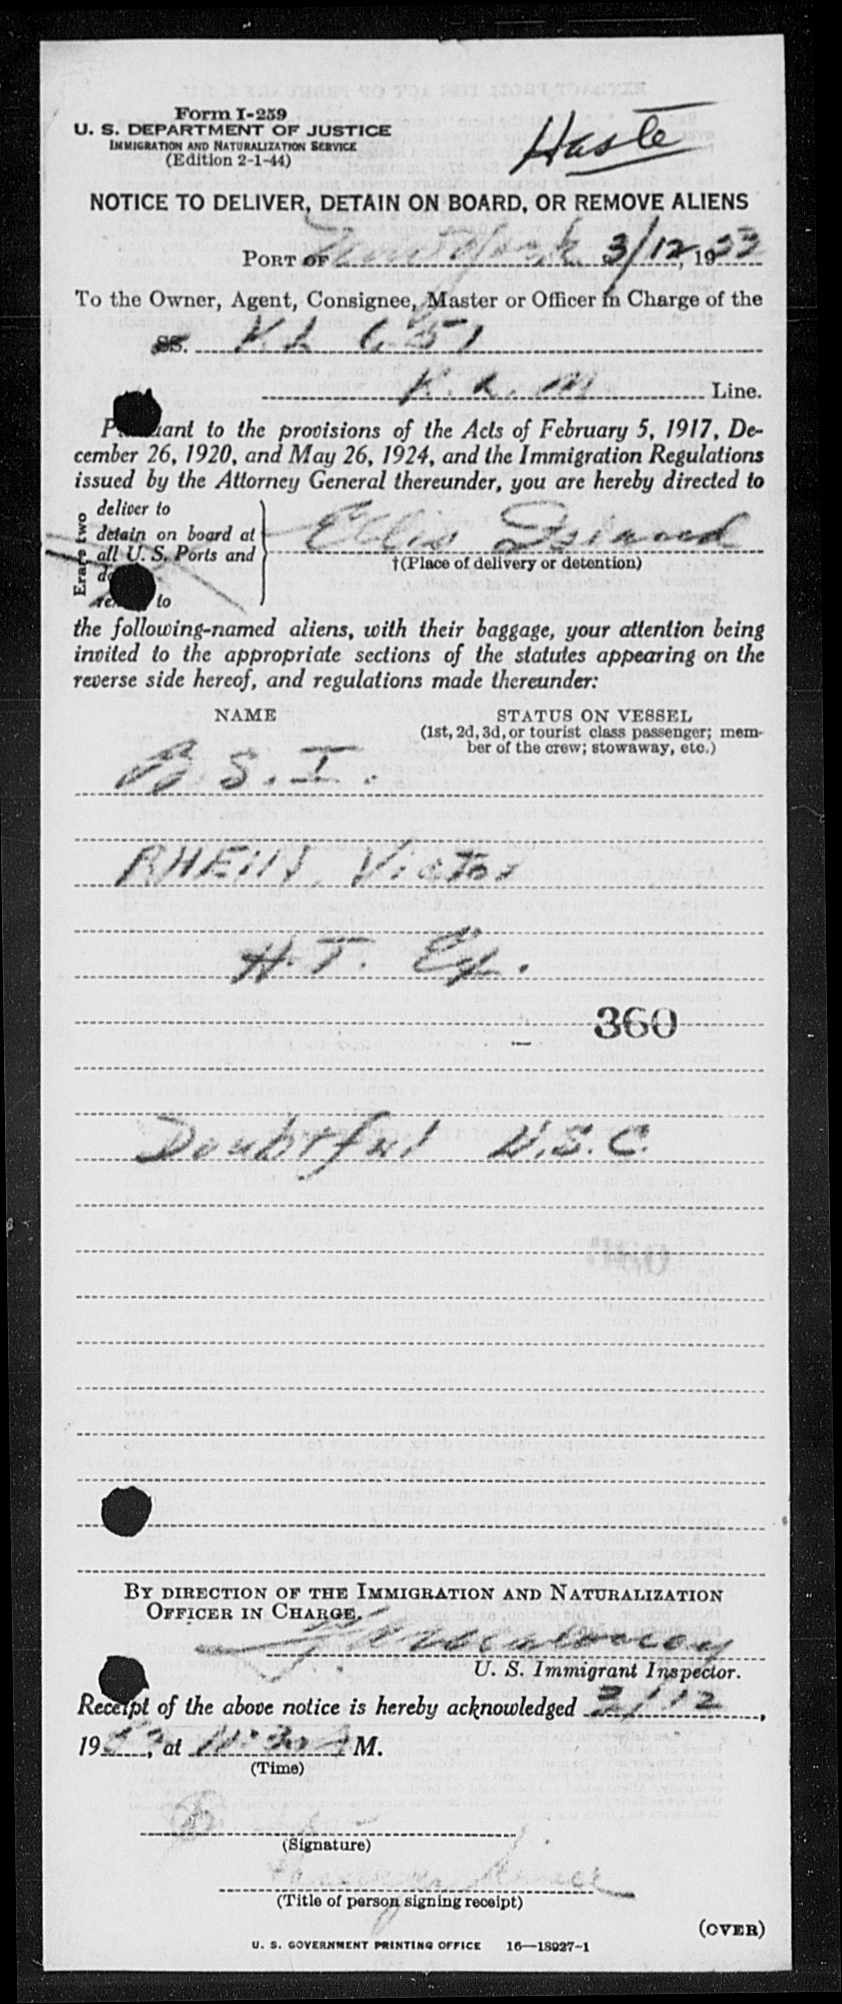 Form I-259
U. S. DEPARTMENT OF JUSTICE
IMMIGRATION AND NATURALIZATION SERVICE
(Edition 2-1-44)
Haste
NOTICE TO DELIVER, DETAIN ON BOARD, OR REMOVE ALIENS
PORT OF New York 3/12, 1953
To the Owner, Agent, Consignee, Master or Officer in Charge of the
SS. KL 651
K.L.M Line.
Pursuant to the provisions of the Acts of February 5, 1917, De-
cember 26, 1920, and May 26, 1924, and the Immigration Regulations
issued by the Attorney General thereunder, you are hereby directed to
Erase two
deliver to
detain on board at
all U. S. Ports and
remove to
Ellis Island
†(Place of delivery or detention)
the following-named aliens, with their baggage, your attention being
invited to the appropriate sections of the statutes appearing on the
reverse side hereof, and regulations made thereunder:
NAME
STATUS ON VESSEL
(1st, 2d, 3d, or tourist class passenger; mem-
ber of the crew; stowaway, etc.)
B.S.I.
RHEIN, Victor
H.T. Ex.
360
Doubtful U.S.C.
BY DIRECTION OF THE IMMIGRATION AND NATURALIZATION
OFFICER IN CHARGE.
U. S. Immigrant Inspector.
Receipt of the above notice is hereby acknowledged 3/12,
1953, at 11:30 A M.
(Time)
(Signature)
(Title of person signing receipt)
(OVER)
U. S. GOVERNMENT PRINTING OFFICE 16—18927-1